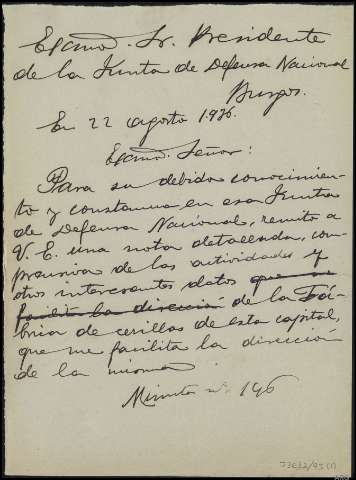 Excmo. Sr. Presidente
de la Junta de Defensa Nacional
Burgos.
En 22 agosto 1936.
Excmo. Señor:
Para su debido conocimien-
to y constancia en esa Junta
de Defensa Nacional, remito a
V. E. una nota detallada, com-
prensiva de las actividades y
otros interesantes datos que me
facilita la dirección de la Fá-
brica de cerillas de esta capital,
que me facilita la dirección
de la misma
Minuta nº 146